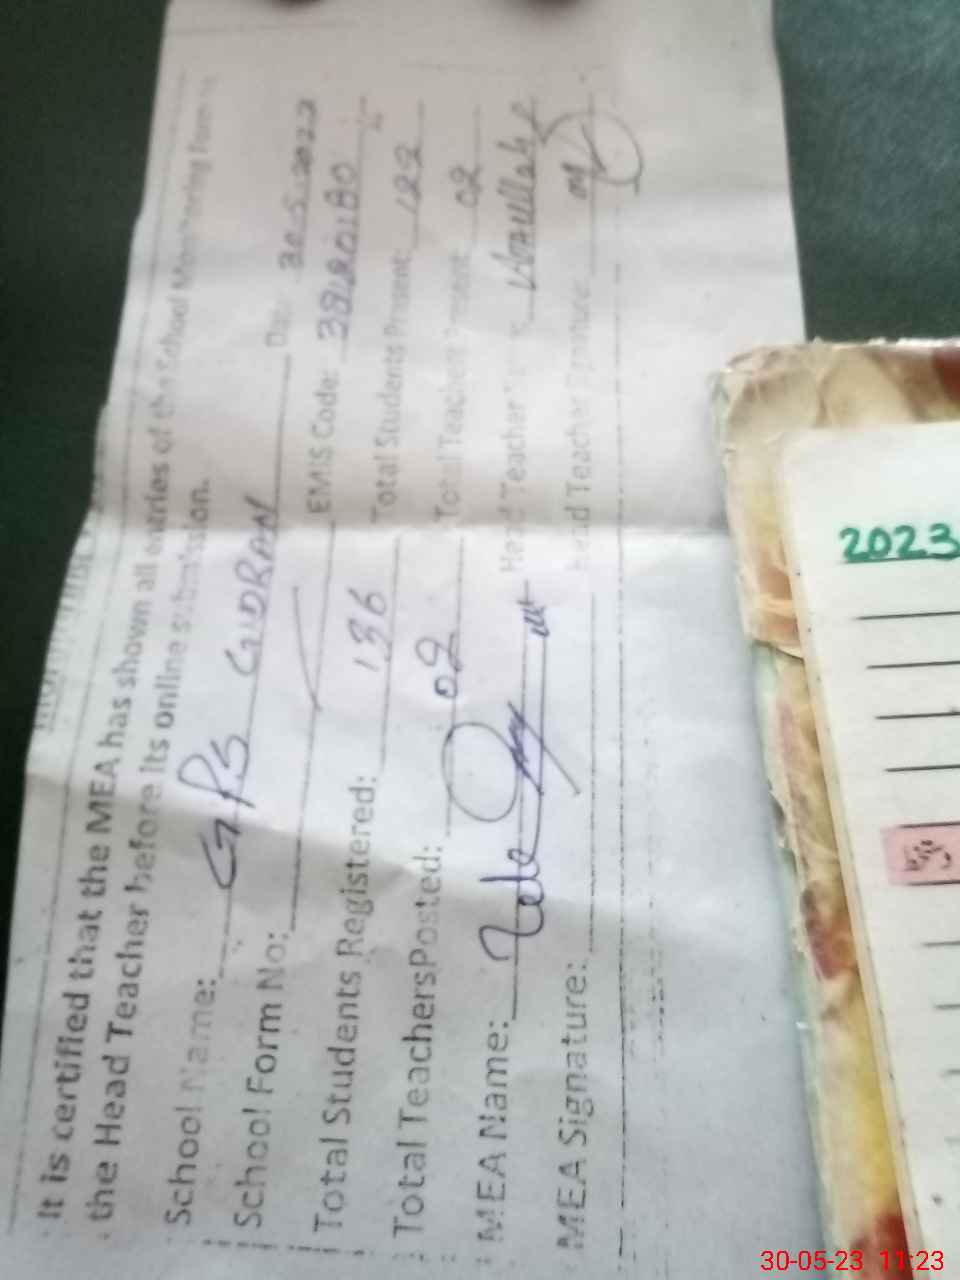 It is certified that the MEA has shown all entries of the School Monitoring Form to
the Head Teacher before its online submission.
School Name: GPS GUDRAN Date: 30-5-2023
School Form No: EMIS Code:
Total Students Registered: 136 Total Students Present: 122
Total Teachers Posted: 02 Total Teachers Present: 02
MEA Name: Head Teacher
MEA Signature: Head Teacher Signature:
2023
30-05-23 11:23